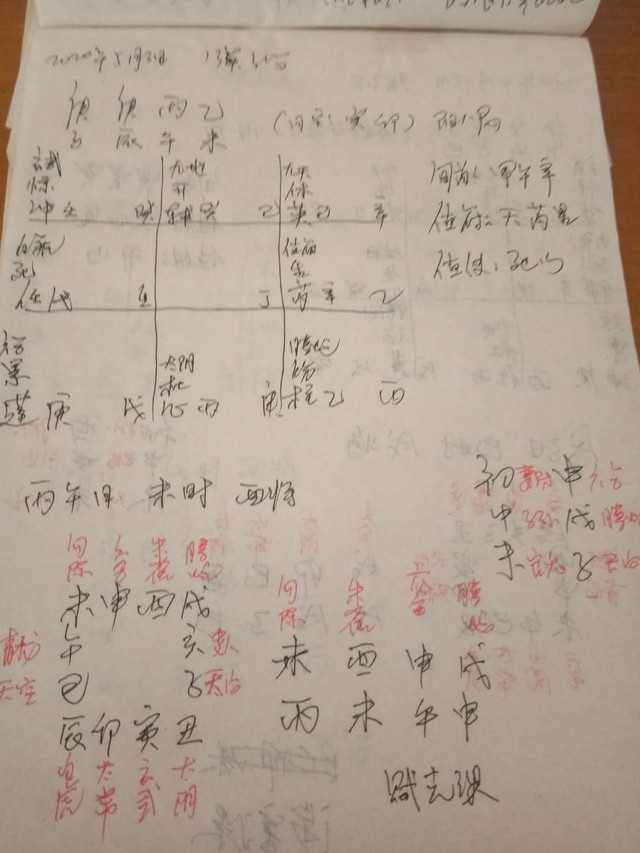 2020年5月3日
庚 庚 丙 乙
子 辰 午 未 (日空:寅卯) 阳八局
玄武 九地 九天 旬首:甲午辛
惊 开 休 值符:天芮星
冲 壬 己 英 己 辛 值使:死门
白虎 值符
死 生
任 戊 壬 丁 芮 辛 乙
六合 太阴 螣蛇
景 杜 伤
蓬 庚 戊 心 丙 庚 柱 乙 丙
丙午日 未时 酉将
初 妻财 申 六合
中 子孙 戌 螣蛇
末 官鬼 子 天后
勾陈 六合 朱雀 螣蛇
未 申 酉 戌
青龙 午 亥 贵人
天空 巳 子 天后
辰 卯 寅 丑
白虎 太常 玄武 太阴
勾陈 朱雀 六合 螣蛇
未 酉 申 戌
丙 未 午 申